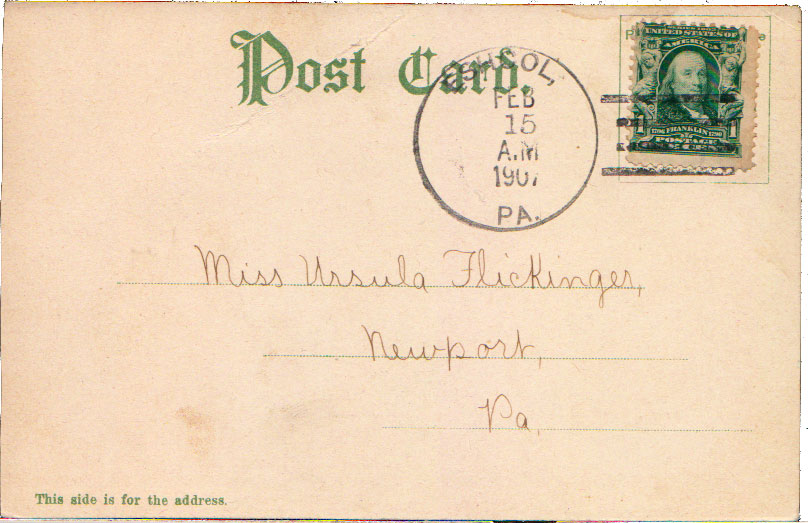 Post Card.
ESHCOL,
FEB
15
A.M
1907
PA.
SERIES 1902
UNITED STATES OF
AMERICA
1706 FRANKLIN 1790
1 POSTAGE 1
Miss Ursula Flickinger,
Newport,
Pa,
This side is for the address.